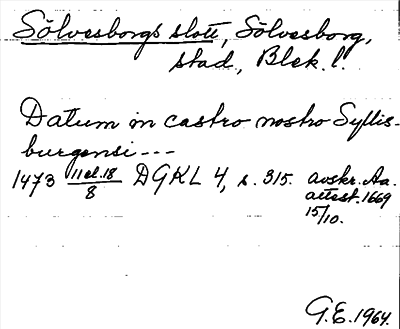 Sölvesborgs slott, Sölvesborg,
stad., Blek. l.
Datum in castro nostro Syllis-
burgensi---
1473 11 el. 18/8 DGKL 4, s. 315. avskr. Aa.
attest. 1669
15/10.
G.E. 1964.